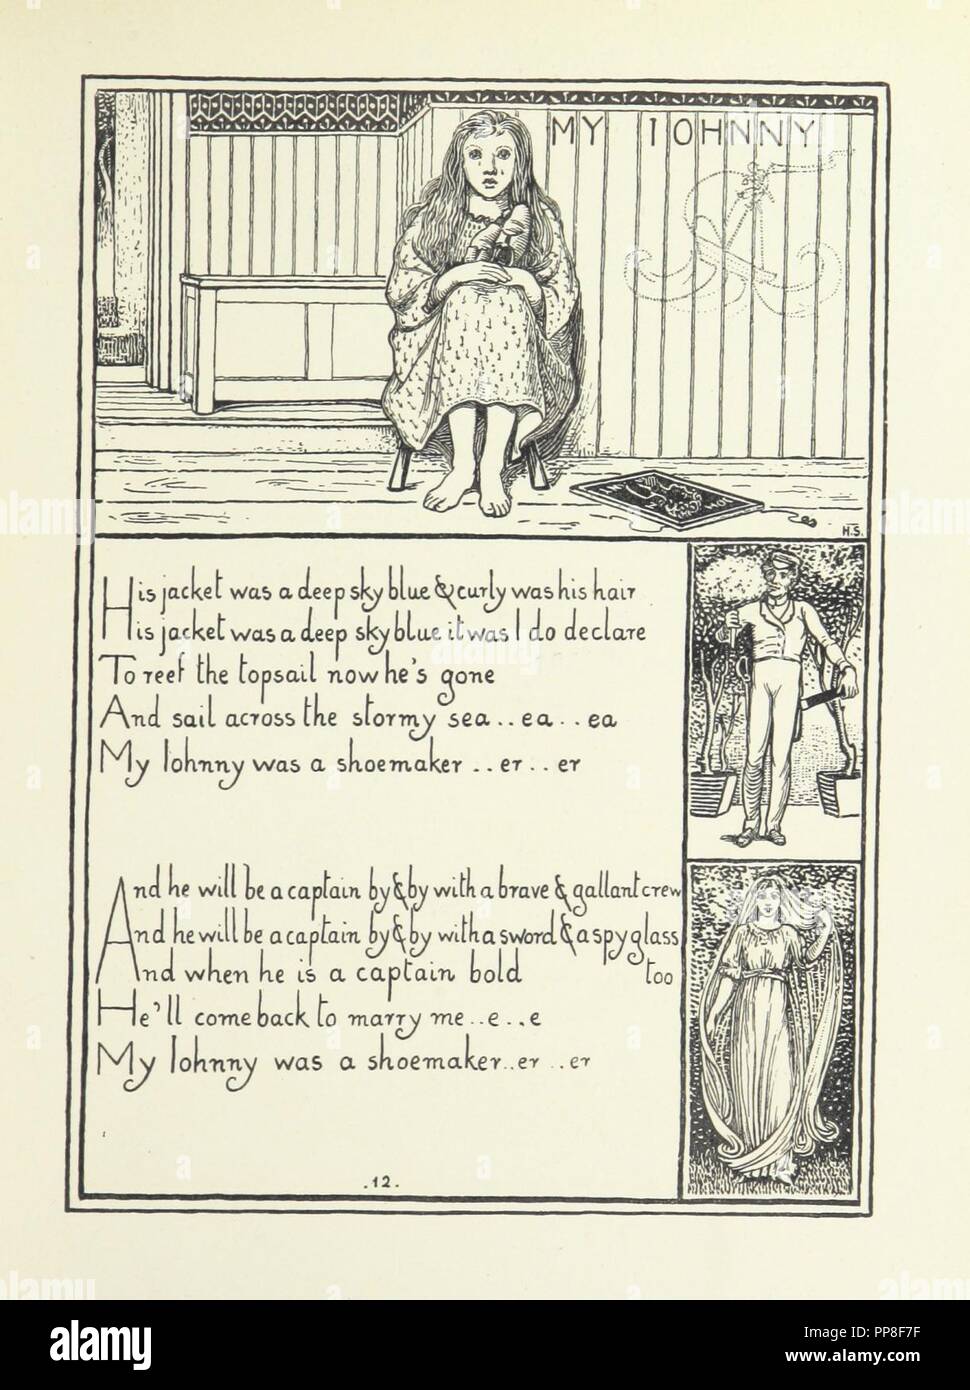 MY IOHNNY
H.S.
His jacket was a deep sky blue & curly was his hair
His jacket was a deep sky blue it was I do declare
To reef the topsail now he's gone
And sail across the stormy sea . . ea . . ea
My Iohnny was a shoemaker . . er . . er
And he will be a captain by & by with a brave & gallant crew
And he will be a captain by & by with a sword & a spy glass
too
And when he is a captain bold
He'll come back to marry me . . e . . e
My Iohnny was a shoemaker . . er . . er
. 12 .
alamy
Image ID: PP8F7F
www.alamy.com